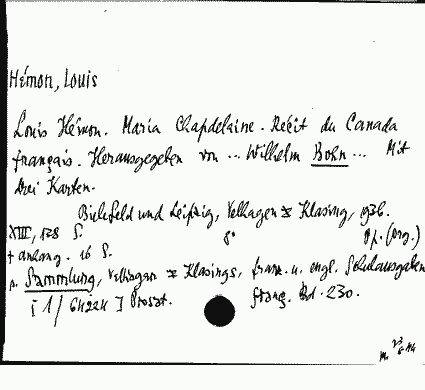 Hémon, Louis
Louis Hémon. Maria Chapdelaine. Récit du Canada
français. Herausgegeben von ... Wilhelm Bohn ... Mit
drei Karten.
Bielefeld und Leipzig, Velhagen & Klasing, 1936.
XIII, 128 S. 8° Op. (Org.)
+ Anhang. 16 S.
s. Sammlung, Velhagen & Klasings, franz. u. engl. Schulausgaben
[1/ ] Prosat. franz. Bd. 230.